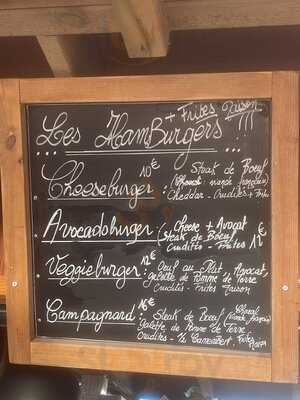 + Frites Maison
... Les HamBurgers ... !!!
Cheeseburger : 10€ Steak de Boeuf
(Charal: viande française)
Cheddar - Crudités + Frites
. Avocadoburger : Cheese + Avocat 12€
Steak de Boeuf
Crudités - Frites
. Veggieburger : 12€ Oeuf au Plat, Avocat,
galette de Pomme de Terre
Crudités - Frites Maison
. Campagnard : 16€ Steak de Boeuf (Charal
Galette de Pomme de Terre
Crudités - Camembert